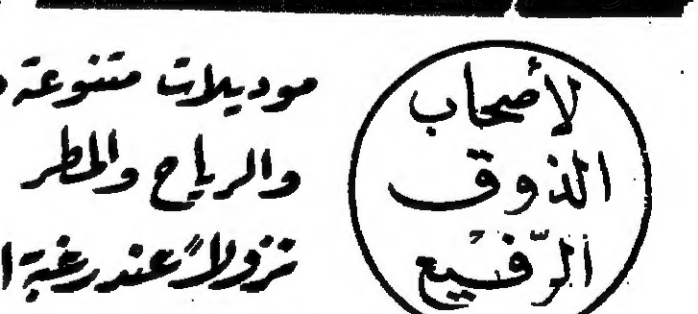 لأصحاب
الذوق
الرّفيع
موديلات متنوعة
والرياح والمطر
نزولاً عند رغبة